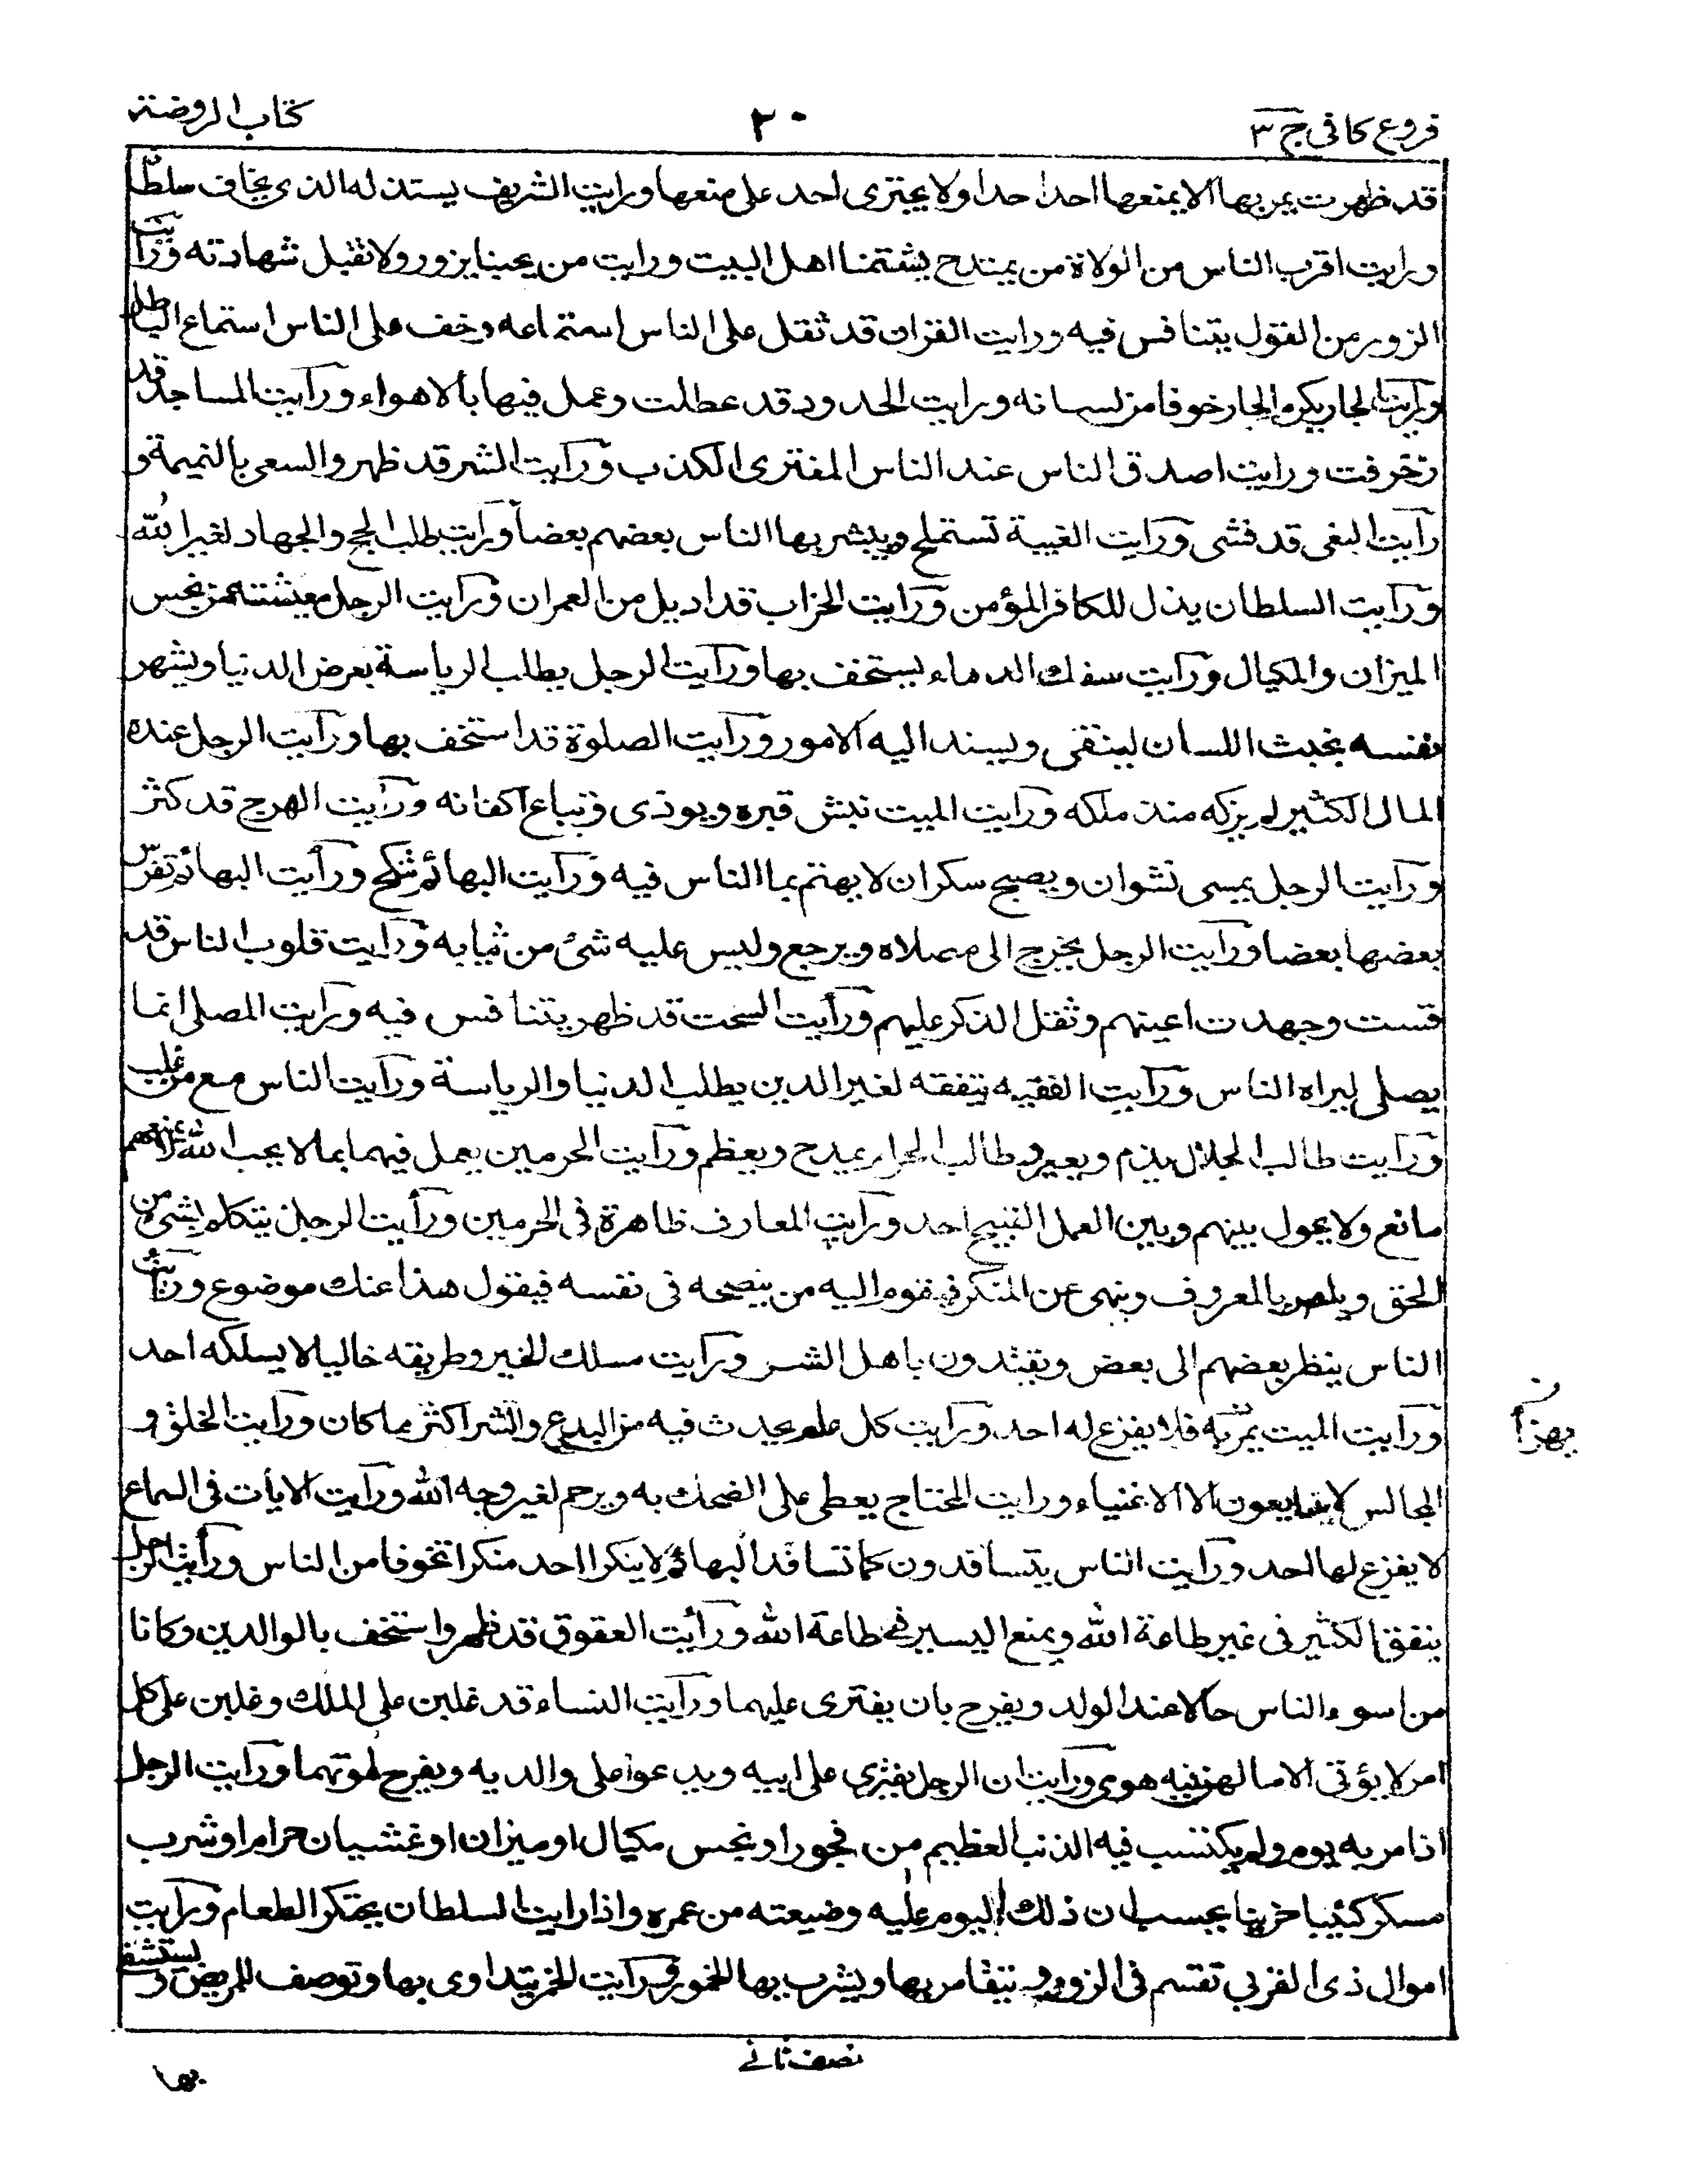 فروع كافى ج ٣
٢٠
كتاب الروضة
قد ظهرت يمر بها لا يمنعها احد احدا ولا يجترى احد على منعها ورايت الشريف يستذله الذى يخاف سلطا
ورايت اقرب الناس من الولاة من يمتدح بشتمنا اهل البيت ورايت من يحبنا يزور ولا تقبل شهادته ورايت
الزور من القول يتنافس فيه ورايت القران قد ثقل على الناس استماعه وخف على الناس استماع الباطل
ورايت الجار يكرم الجار خوفا من لسانه ورايت الحدود قد عطلت وعمل فيها بالاهواء ورايت المساجد قد
زخرفت ورايت اصدق الناس عند الناس المفترى الكذب ورايت الشر قد ظهر والسعى بالنميمة و
رايت البغى قد فشى ورايت الغيبة تستملح ويبشر بها الناس بعضهم بعضا ورايت طلب الحج والجهاد لغير الله
ورايت السلطان يذل للكافر المؤمن ورايت الخراب قد اديل من العمران ورايت الرجل معيشته من بخس
الميزان والمكيال ورايت سفك الدماء يستخف بها ورايت الرجل يطلب الرياسة بعرض الدنيا ويشهر
نفسه بخبث اللسان ليتقى ويسند اليه الامور ورايت الصلوة قد استخف بها ورايت الرجل عنده
المال الكثير لم يزكه منذ ملكه ورايت الميت نبش قبره ويوذى وتباع اكفانه ورايت الهرج قد كثر
ورايت الرجل يمسى نشوان ويصبح سكران لا يهتم بما الناس فيه ورايت البهائم تنكح ورأيت البهائم تفرس
بعضها بعضا ورايت الرجل يخرج الى مصلاه ويرجع وليس عليه شئ من ثيابه ورايت قلوب الناس قد
قست وجمدت اعينهم وثقل الذكر عليهم ورأيت السحت قد ظهر يتنافس فيه ورايت المصلى انما
يصلى ليراه الناس ورايت الفقيه يتفقه لغير الدين يطلب الدنيا والرياسة ورايت الناس مع من غلب
ورايت طالب الحلال يذم ويعير وطالب الحرام يمدح ويعظم ورايت الحرمين يعمل فيهما بما لا يحب الله لا يمنعهم
مانع ولا يحول بينهم وبين العمل القبيح احد ورايت المعازف ظاهرة فى الحرمين ورأيت الرجل يتكلم بشئ من
الحق ويامر بالمعروف وينهى عن المنكر فيقوم اليه من ينصحه فى نفسه فيقول هذا عنك موضوع ورايت
الناس ينظر بعضهم الى بعض ويقتدون باهل الشر ورايت مسلك الخير وطريقه خاليا لا يسلكه احد
ورايت الميت يمر به فلا يفزع له احد ورايت كل عام يحدث فيه من البدع والشر اكثر مما كان ورايت الخلق و
يهزأ ن
المجالس لا يتابعون الا الاغنياء ورايت المحتاج يعطى على الضحك به ويرحم لغير وجه الله ورايت الايات فى السماء
لا يفزع لها احد ورايت الناس يتسافدون كما تسافد البهائم لا ينكر احد منكرا تخوفا من الناس ورأيت الرجل
ينفق الكثير فى غير طاعة الله ويمنع اليسير فى طاعة الله ورأيت العقوق قد ظهر واستخف بالوالدين وكانا
من اسوء الناس حالا عند الولد ويفرح بان يفترى عليهما ورأيت النساء قد غلبن على الملك وغلبن على كل
امر لا يؤتى الا ما لهن فيه هوى ورايت ابن الرجل يفترى على ابيه ويدعو على والديه ويفرح لموتهما ورايت الرجل
اذا مر به يوم ولم يكتسب فيه الذنب العظيم من فجور او بخس مكيال او ميزان او غشيان حرام او شرب
مسكر كئيبا حزينا يحسب ان ذلك اليوم عليه وضيعته من عمره واذا رايت السلطان يحتكر الطعام ورايت
اموال ذى القربى تقسم فى الزور ويتقامر بها ويشرب بها الخمور ورايت الخمر يتداوى بها وتوصف للمريض ويستشفى
نصف ثانے
بها